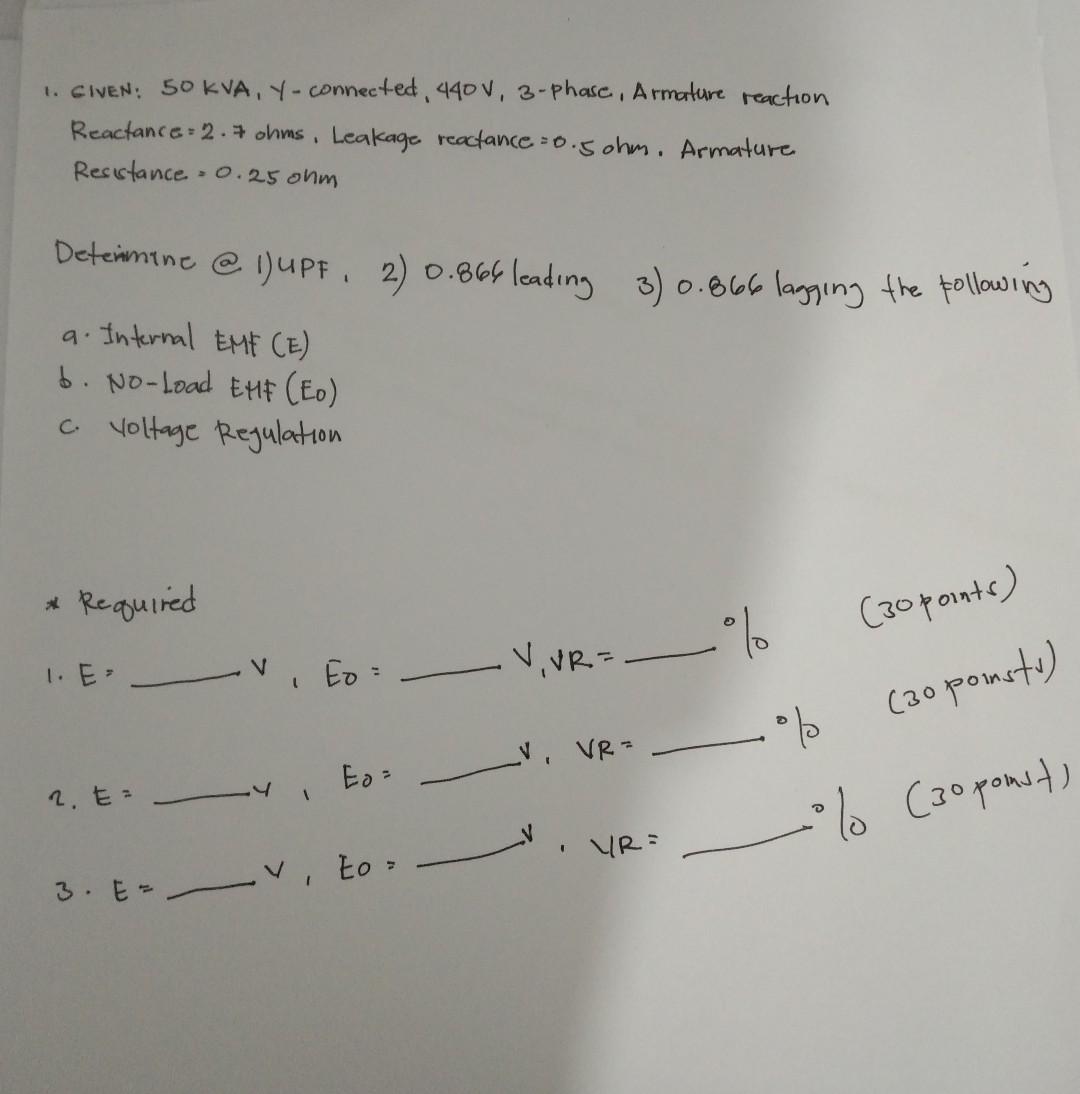 1. GIVEN: 50 KVA, Y-connected, 440V, 3-phase, Armature reaction
Reactance = 2.7 ohms, Leakage reactance = 0.5 ohm. Armature
Resistance = 0.25 ohm
Determine @ 1) UPF, 2) 0.866 leading 3) 0.866 lagging the following
a. Internal EMF (E)
b. No-Load EMF (Eo)
c. Voltage Regulation
* Required
1. E = ____ V, Eo = ____ V, VR = ____ % (30 points)
2. E = ____ V, Eo = ____ V, VR = ____ % (30 poinsts)
3. E = ____ V, Eo = ____ V, VR = ____ % (30 poinst)